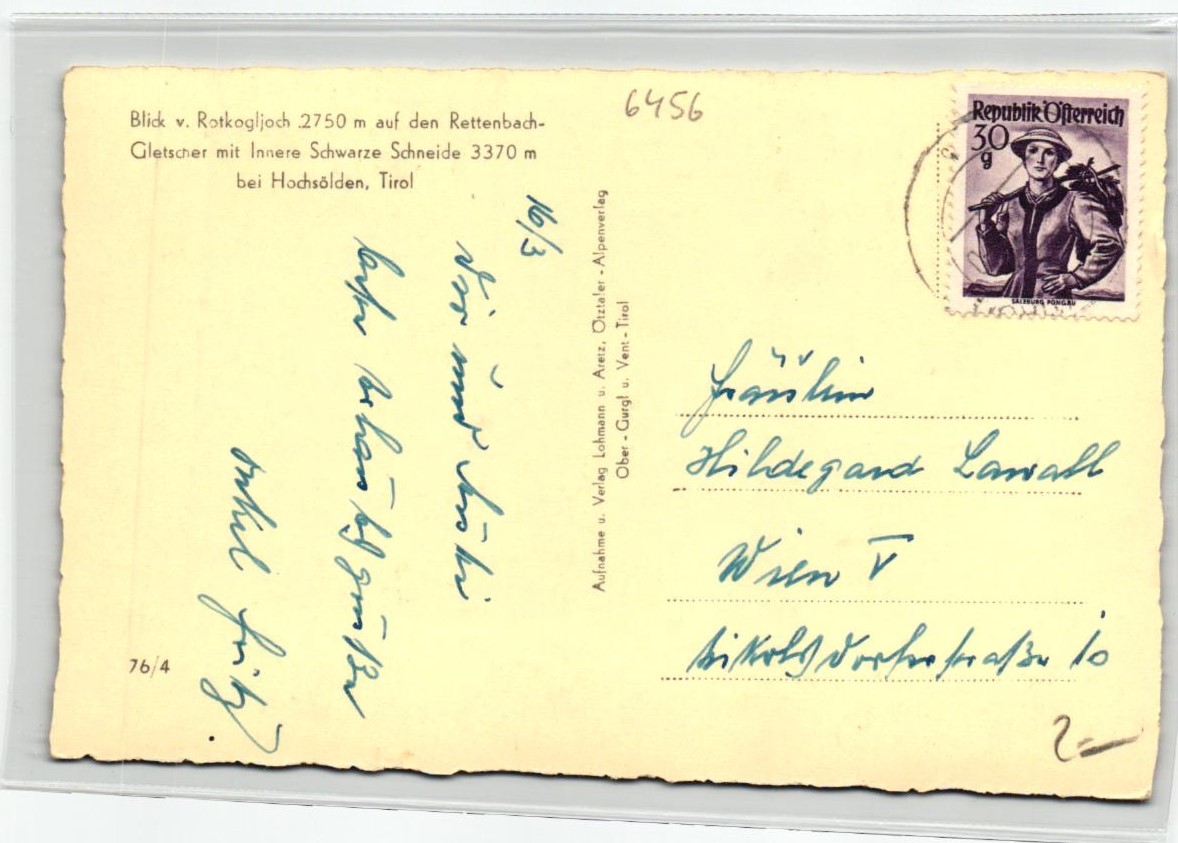 Blick v. Rotkogljoch 2750 m auf den Rettenbach-
Gletscher mit Innere Schwarze Schneide 3370 m
bei Hochsölden, Tirol
6456
Republik Österreich
30
g
SALZBURG PONGAU
16/3
Dir und
Onkel Fritz
Aufnahme u. Verlag Lohmann u. Aretz, Ötztaler-Alpenverlag
Ober-Gurgl u. Vent-Tirol
Fräulein
Hildegard Lawall
Wien V
Nikolsdorferstraße 10
76/4
2-